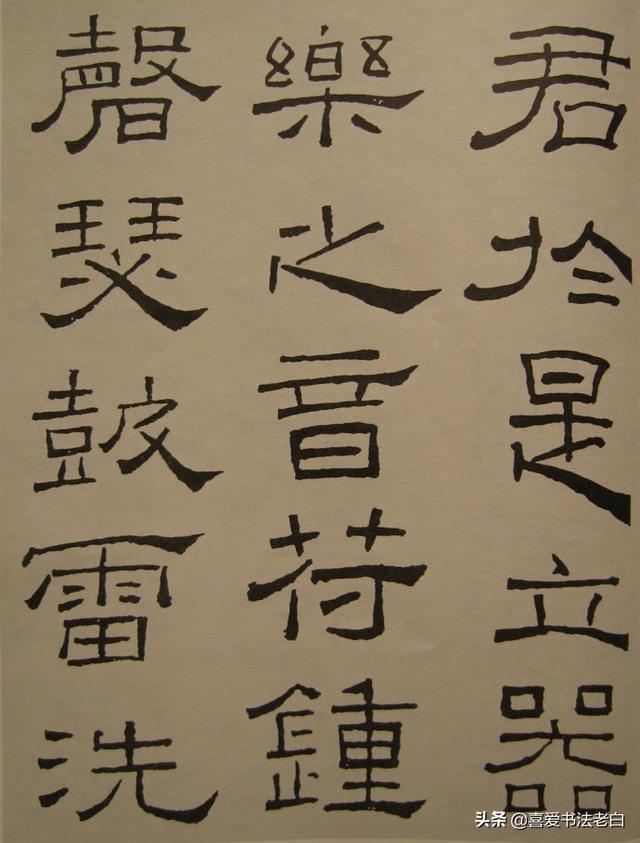 君於是立器
樂之音符鍾
磬瑟皷雷洗
头条 @喜爱书法老白